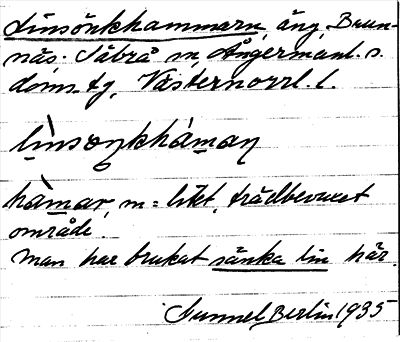 Linsönkhammarn, äng, Brun-
näs. Säbrå sn, Ångermanl. s.
doms. tg, Västernorrl. l.
lìnsøŋkhàmaɳ
hàmar, m = litet, trädbevuxet
område.
Man har brukat sänka lin här.
Gunnel Berlin 1935